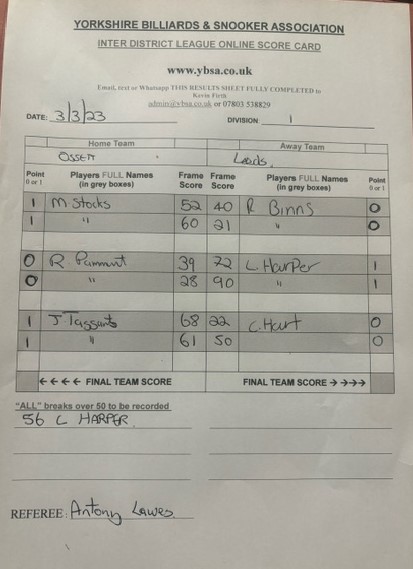 YORKSHIRE BILLIARDS & SNOOKER ASSOCIATION
INTER DISTRICT LEAGUE ONLINE SCORE CARD
www.ybsa.co.uk
Email, text or Whatsapp THIS RESULTS SHEET FULLY COMPLETED to
Kevin Firth
admin@ybsa.co.uk or 07803 538829
DATE: 3/3/23 DIVISION: 1
Home Team Away Team
OSSETT Leeds.
Point 0 or 1 Players FULL Names (in grey boxes) Frame Score Frame Score Players FULL Names (in grey boxes) Point 0 or 1
1 M Stocks 52 40 R Binns 0
1 " 60 21 " 0
0 R. 39 72 L Harper 1
0 " 28 90 " 1
1 J. 68 22 C. Hart 0
1 " 61 50 0
←←←← FINAL TEAM SCORE FINAL TEAM SCORE →→→→
"ALL" breaks over 50 to be recorded
56 L HARPER.
REFEREE: Antony Lawes